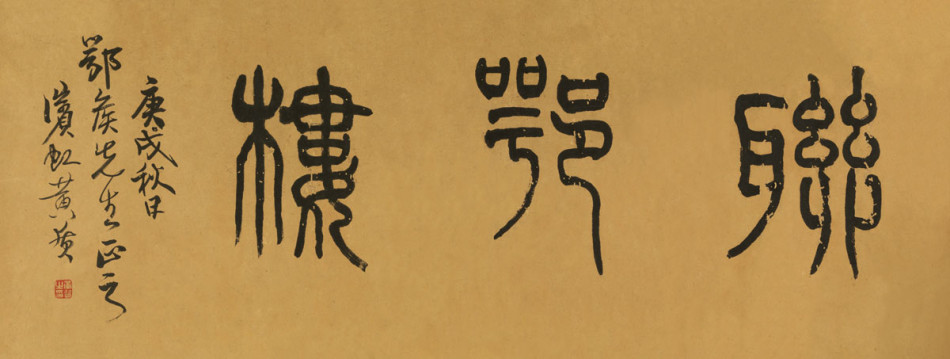 聯鄂樓
庚戌秋日
鄂矦先生正之
濱虹黃質